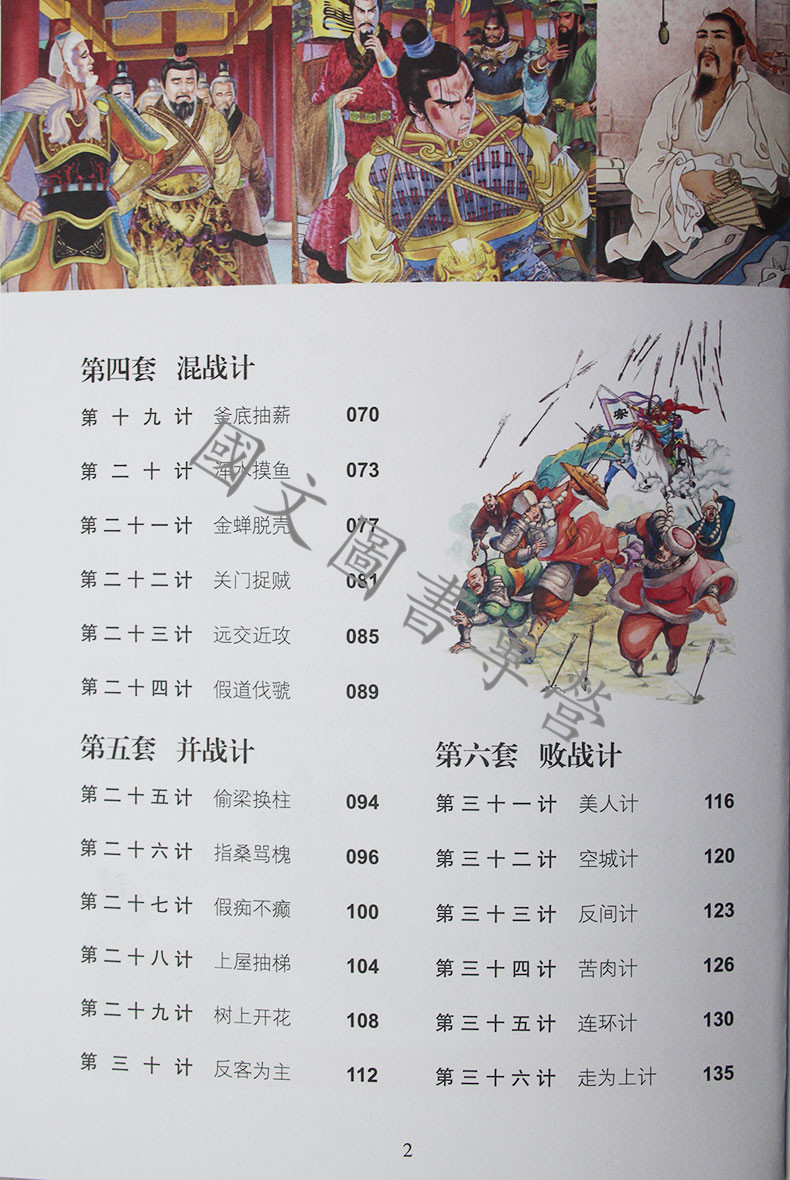 宋
第四套 混战计
第十九计 釜底抽薪 070
第二十计 浑水摸鱼 073
第二十一计 金蝉脱壳 077
第二十二计 关门捉贼 081
第二十三计 远交近攻 085
第二十四计 假道伐虢 089
第五套 并战计
第二十五计 偷梁换柱 094
第二十六计 指桑骂槐 096
第二十七计 假痴不癫 100
第二十八计 上屋抽梯 104
第二十九计 树上开花 108
第三十计 反客为主 112
第六套 败战计
第三十一计 美人计 116
第三十二计 空城计 120
第三十三计 反间计 123
第三十四计 苦肉计 126
第三十五计 连环计 130
第三十六计 走为上计 135
國文圖書專營
2